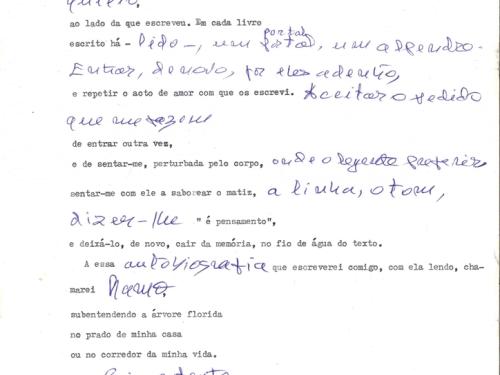 quero,
ao lado da que escreveu. Em cada livro
escrito há - lido -, um portal, um alpendre.
Entrar, de novo, por eles adentro,
e repetir o acto de amor com que os escrevi. Aceitar o pedido
que me fazem
de entrar outra vez,
e de sentar-me, perturbada pelo corpo, onde o legente preferir
sentar-me com ele a saborear o matiz, a linha, o tom,
dizer-lhe " é pensamento",
e deixá-lo, de novo, cair da memória, no fio de água do texto.
A essa autobiografia que escreverei comigo, com ela lendo, cha-
marei
subentendendo a árvore florida
no prado de minha casa
ou no corredor da minha vida.